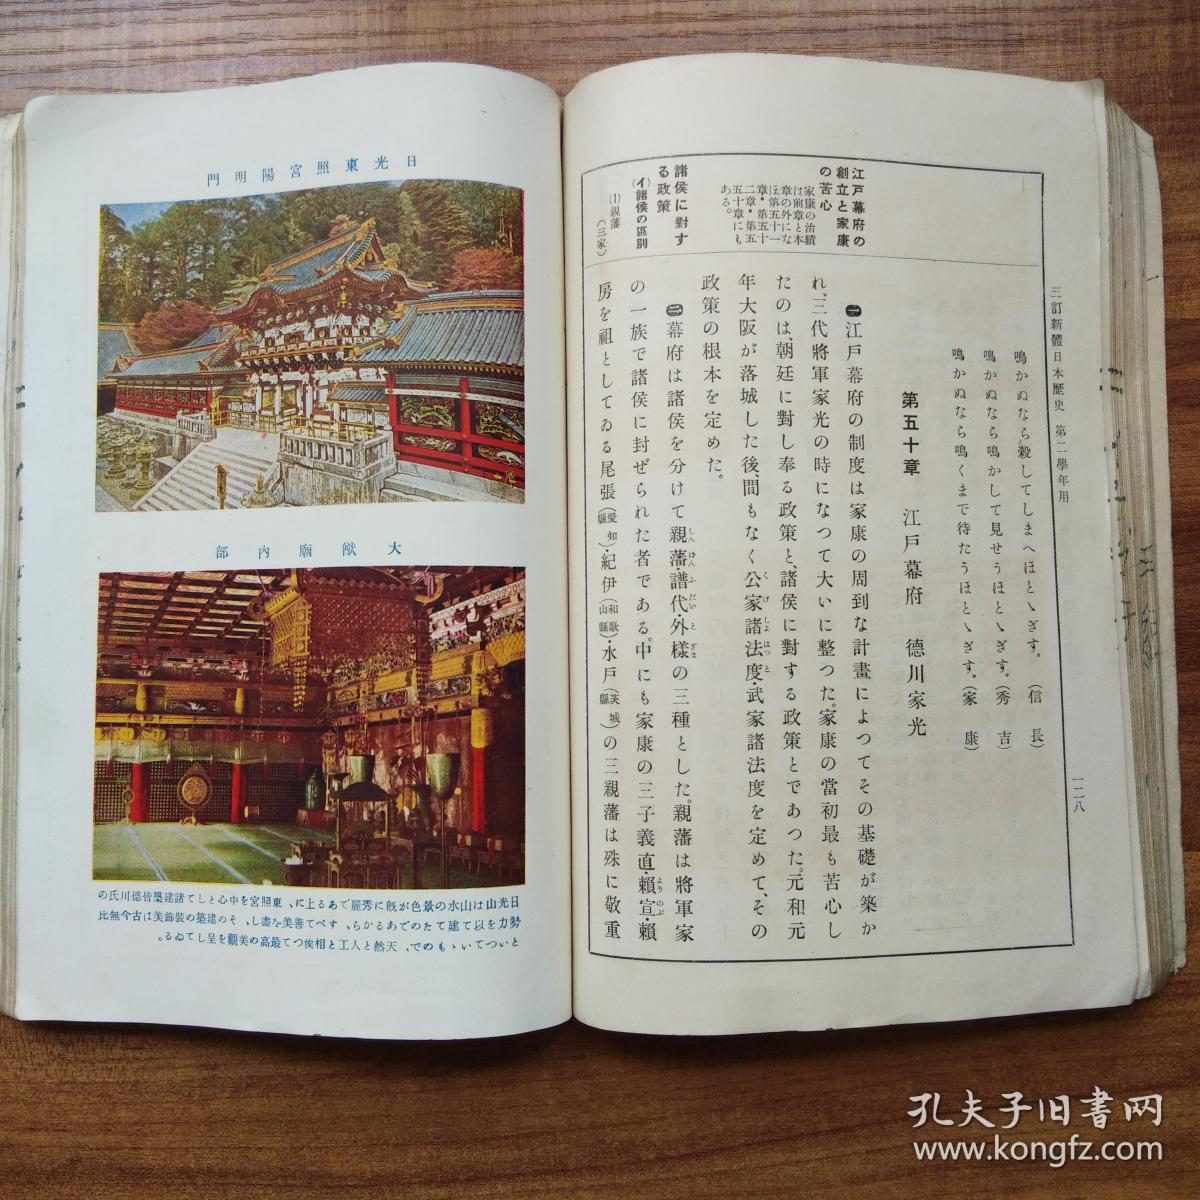 三訂新體日本歷史 第二學年用
一二八
鳴かぬなら殺してしまへほとゝぎす。(信長)
鳴かぬなら鳴かして見せうほとゝぎす。(秀吉)
鳴かぬなら鳴くまで待たうほとゝぎす。(家康)
第五十章 江戸幕府 德川家光
江戸幕府の
創立と家康
の苦心
家康の治績
は前章と本
章の外にな
ほ第五十一
章・第五十
二章・第五
十章にも
ある。
㊀江戸幕府の制度は家康の周到な計畫によつてその基礎が築か
れ、三代將軍家光の時になつて大いに整つた。家康の當初最も苦心し
たのは、朝廷に對し奉る政策と、諸侯に對する政策とであつた。元和元
年大阪が落城した後、間もなく公家諸法度・武家諸法度を定めて、その
政策の根本を定めた。
諸侯に對す
る政策
(イ)諸侯の區別
(1)親藩
(三家)
㊁幕府は諸侯を分けて親藩・譜代・外樣の三種とした。親藩は將軍家
の一族で諸侯に封ぜられた者である。中にも家康の三子義直・賴宣・賴
房を祖としてゐる尾張(愛知縣)・紀伊(和歌山縣)・水戸(茨城縣)の三親藩は殊に敬重
日光東照宮陽明門
大猷廟內部
日光山は山水の景色が旣に秀麗である上に、東照宮を中心として諸建築皆德川氏の
勢力を以て建てたのであるから、すべて善美を盡し、その建築の裝飾美は古今無比
といつてい丶もので、天然と人工と相俟つて最高の美觀を呈してゐる。
孔夫子旧书网
www.kongfz.com